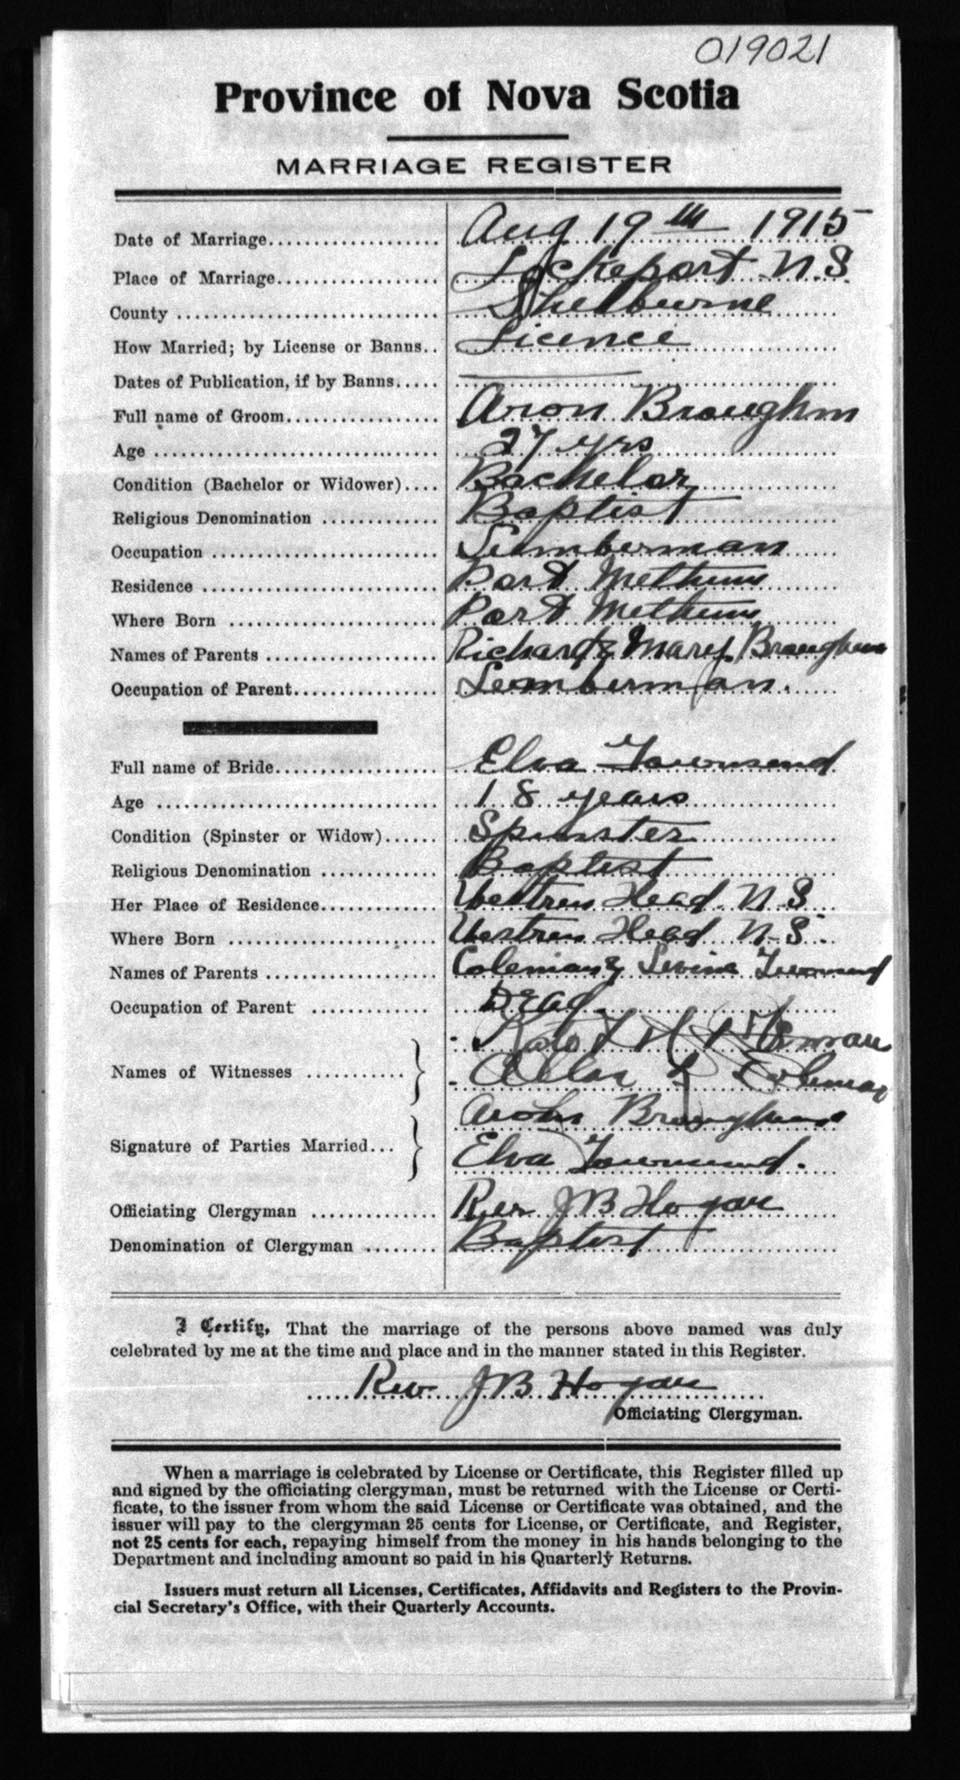 019021
Province of Nova Scotia
MARRIAGE REGISTER
Date of Marriage................... Aug 19th 1915
Place of Marriage.................. Lockeport N.S.
County ............................. Shelburne
How Married; by License or Banns.. Licence
Dates of Publication, if by Banns.....
Full name of Groom................. Aron Braughm
Age ............................... 27 yrs
Condition (Bachelor or Widower).... Bachelor
Religious Denomination ............ Baptist
Occupation ........................ Lumberman
Residence ......................... Port Methum
Where Born ....................... Port Methum
Names of Parents .................. Richard & Mary Braughm
Occupation of Parent............... Lumberman.
Full name of Bride................. Elva Townsend
Age ............................... 18 years
Condition (Spinster or Widow)...... Spinster
Religious Denomination ............ Baptist
Her Place of Residence............. Western Head N S
Where Born ....................... Western Head N-S.
Names of Parents .................. Coleman & Levina Townsend
Occupation of Parent ............. Dead.
Names of Witnesses ...........
Allan
Signature of Parties Married...
Elva Townsend.
Officiating Clergyman ............. Rev J B Hogan
Denomination of Clergyman ........ Baptist
I Certify, That the marriage of the persons above named was duly
celebrated by me at the time and place and in the manner stated in this Register.
Rev J B Hogan
Officiating Clergyman.
When a marriage is celebrated by License or Certificate, this Register filled up
and signed by the officiating clergyman, must be returned with the License or Certi-
ficate, to the issuer from whom the said License or Certificate was obtained, and the
issuer will pay to the clergyman 25 cents for License, or Certificate, and Register,
not 25 cents for each, repaying himself from the money in his hands belonging to the
Department and including amount so paid in his Quarterly Returns.
Issuers must return all Licenses, Certificates, Affidavits and Registers to the Provin-
cial Secretary's Office, with their Quarterly Accounts.